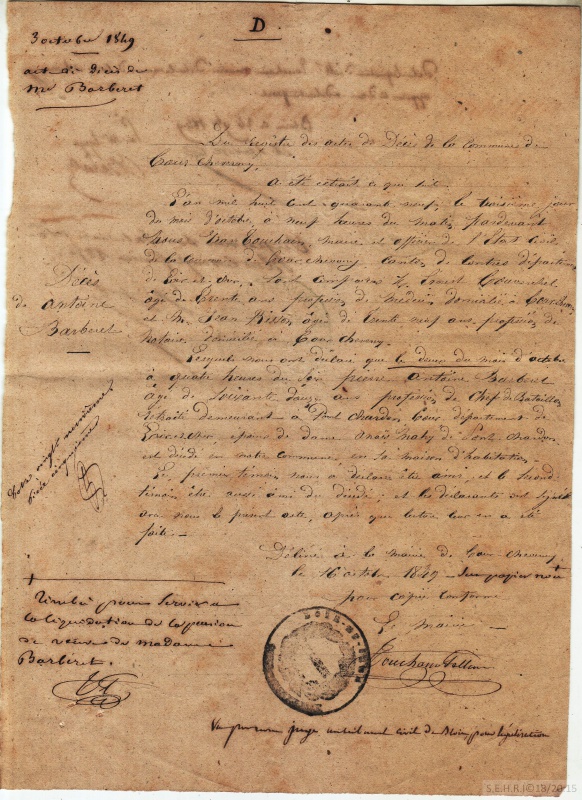 D
3 octobre 1849
acte de Décès de
Mr Barberet
Du Registre des actes de Décès de la Commune de
Cour Cheverny,
a été extrait ce que suit.
L'an mil huit cent quarante neuf, le troisième jour
du mois d'octobre, à neuf heures du matin, pardevant
Nous Jean Touchain, maire et officier de l'État Civil
de la Commune de Cour cheverny canton de Contres département
de Loir et cher, sont comparus M. Ernest
âgé de trente ans profession de médecin, domicilié à Cour Cheverny
et Mr Jean âgé de trente neuf ans, profession de
Notaire, domicilié à Cour Cheverny.
Lesquels nous ont déclaré que le deux du mois d'octobre
à quatre heures du soir pierre Antoine Barberet
âgé de soixante ans profession de Chef de Bataillon
retraité demeurant à Pont Chardon Cour département de
Loir et cher, époux de dame de Pont Chardon
est décédé en notre commune, en sa maison d'habitation.
Le premier témoin nous a déclaré être ami, et le second
témoin être aussi ami du décédé; et les déclarants ont signé
avec nous le present acte, après que lecture leur en a été
faite.
Décès
de Antoine
Barberet
Délivré à la mairie de Cour cheverny
le 16 octobre 1849
pour copie conforme
Le maire
LOIR-ET-CHER
pour servir a
la liquidation de la pension
de veuve de madame
Barberet.
Vu par nous juge au tribunal civil de Blois, pour légalisation
S.E.H.R.I©18/20.15